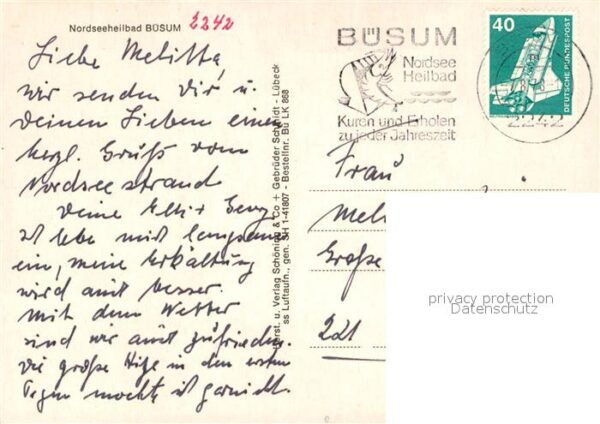 Nordseeheilbad BÜSUM
2242
Liebe Melitta,
wir senden Dir u.
Deinen Lieben einen
herzl. Gruß vom
Nordseestrand
Deine
ist lebe mit
ein, meine Erkältung
wird amt besser.
Mit dem Wetter
sind wir amt zufrieden.
Die große Hitze in den ersten
Tagen mochte ist garnicht.
Verlag Schöning & Co + Gebrüder Schmidt - Lübeck
ss Luftaufn., gen. SH 1-41807 - Bestellnr. Bü LK 868
BÜSUM
Nordsee
Heilbad
Kuren und Erholen
zu jeder Jahreszeit
40
DEUTSCHE BUNDESPOST
2242
Frau
Mel
Große
221
privacy protection
Datenschutz